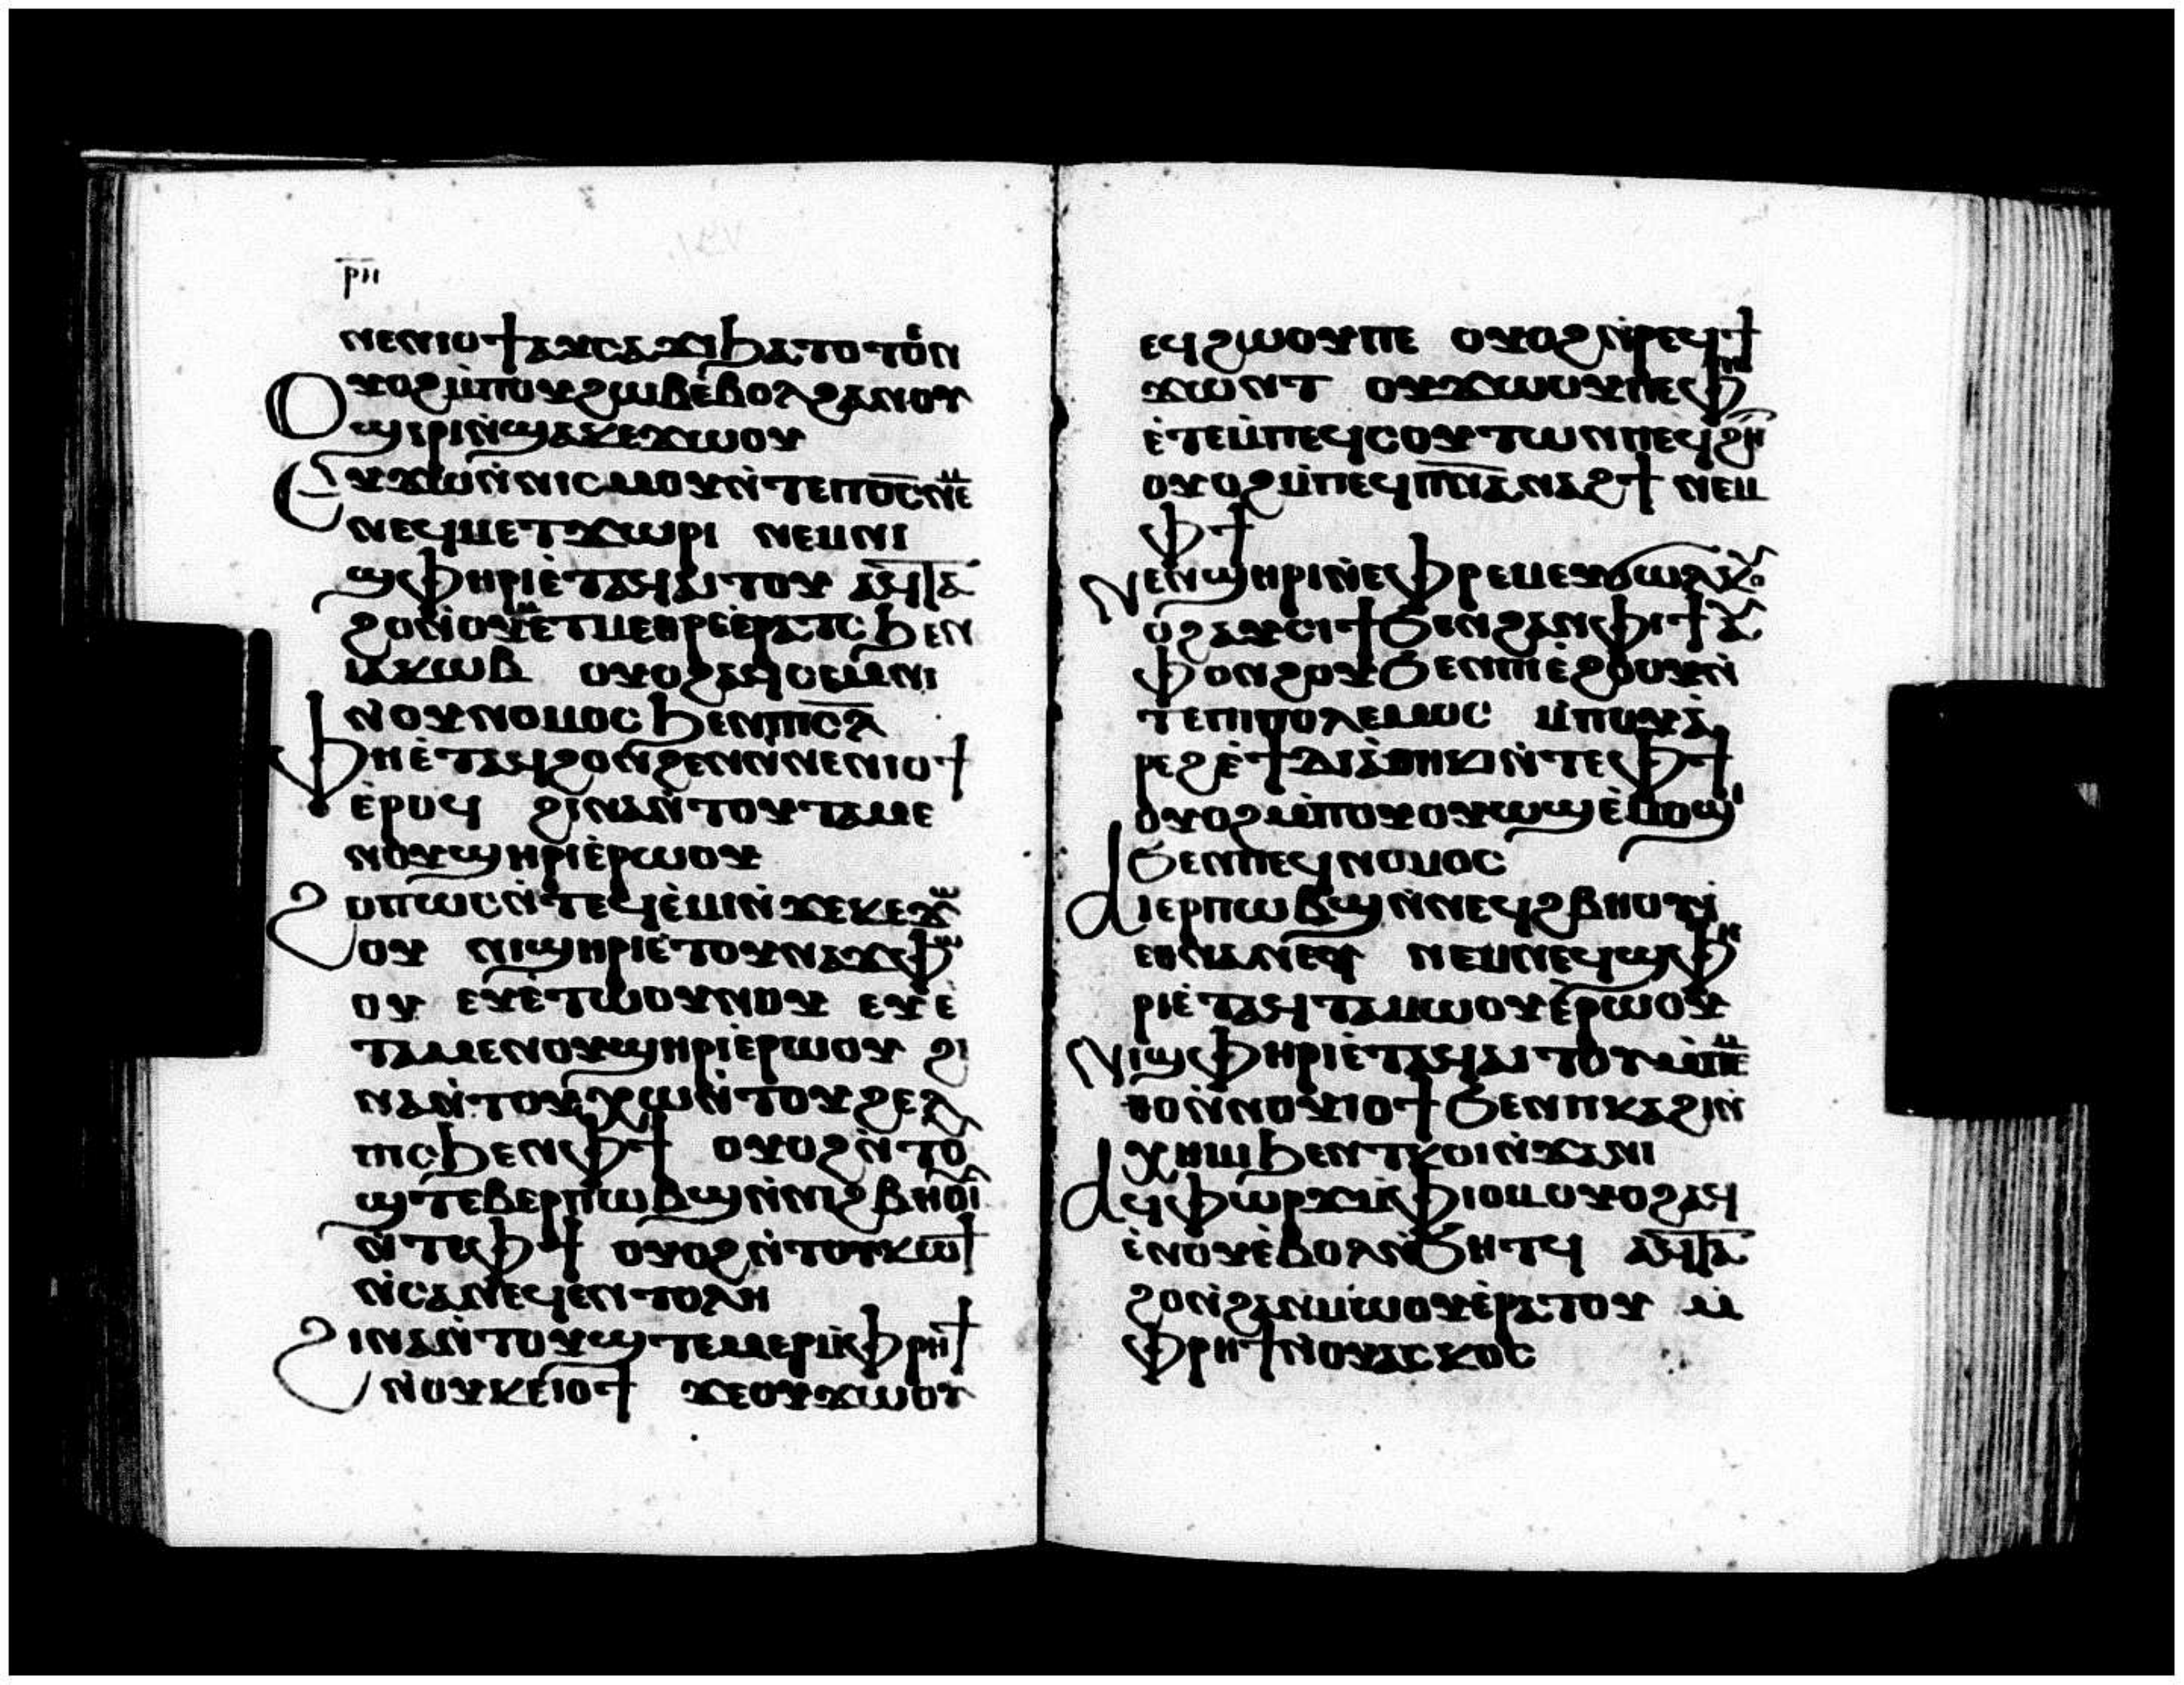 ⲣⲏ
ⲛⲉⲛⲓⲟϯⲁⲩⲥⲁϫⲓϧⲁⲧⲟⲧⲟⲩⲛ
Ⲟⲩⲟϩⲙ̀ⲡⲟⲩϩⲱⲃⲉ̀ⲃⲟⲗϩⲁⲛⲟⲩ
ϣⲏⲣⲓⲛ̀ϣⲁⲕⲉϫⲱⲟⲩ
Ⲉⲩϫⲱⲛ̀ⲛⲓⲥⲙⲟⲩⲛ̀ⲧⲉⲡⲟ̅ⲥ̅ⲛⲉⲙ
ⲛⲉϥⲙⲉⲧϫⲱⲣⲓ ⲛⲉⲙⲛⲓ
ϣⲫⲏⲣⲓⲉ̀ⲧⲁϥⲁⲓⲧⲟⲩ ⲁϥⲧⲁ
ϩⲟⲛ̀ⲟⲩⲙⲉⲧⲙⲉⲑⲣⲉⲉ̀ⲣⲁⲧⲥ ϧⲉⲛ
ⲓⲁⲕⲱⲃ ⲟⲩⲟϩⲁϥⲥⲉⲙⲛⲓ
ⲛ̀ⲟⲩⲛⲟⲙⲟⲥϧⲉⲛⲡⲓⲥ̅ⲗ̅
Ⲫⲏⲉ̀ⲧⲁϥϩⲟⲛϩⲉⲛⲛ̀ⲛⲉⲛⲓⲟϯ
ⲉ̀ⲣⲟϥ ϩⲓⲛⲁⲛ̀ⲧⲟⲩⲧⲁⲙⲉ
ⲛⲟⲩϣⲏⲣⲓⲉ̀ⲣⲱⲟⲩ
Ϩⲟⲡⲱⲥⲛ̀ⲧⲉϥⲉ̀ⲙⲓⲛ̀ϫⲉⲕⲉϫⲱ
ⲟⲩ ⲛⲓϣⲏⲣⲓⲉ̀ⲧⲟⲩⲛⲁϫⲫⲱ
ⲟⲩ ⲉⲩⲉ̀ⲧⲱⲟⲩⲛⲟⲩ ⲉⲩⲉ̀
ⲧⲁⲙⲉⲛⲟⲩϣⲏⲣⲓⲉ̀ⲣⲱⲟⲩ ϩⲓ
ⲛⲁⲛ̀ⲧⲟⲩⲭⲱⲛ̀ⲧⲟⲩϩⲉⲗ
ⲡⲓⲥϧⲉⲛⲫϯ ⲟⲩⲟϩⲛ̀ⲧⲟⲩ
ϣⲧⲉⲙⲉⲣⲡⲱⲃϣⲛ̀ⲛⲓϩⲃⲏⲟⲩⲓ̀
ⲛ̀ⲧⲉⲫϯ ⲟⲩⲟϩⲛ̀ⲧⲟⲩⲕⲱϯ
ⲛ̀ⲥⲁⲛⲉϥⲉⲛⲧⲟⲗⲏ
Ϩⲓⲛⲁⲛ̀ⲧⲟⲩϣⲧⲉⲙⲉⲣⲙ̀ⲫⲣⲏϯ
ⲛ̀ⲟⲩⲕⲉⲓⲟϯ ϫⲉⲟⲩϫⲱⲟⲩ
ⲉϥϩⲱⲟⲩⲡⲉ ⲟⲩⲟϩⲛ̀ⲣⲉϥϯ
ϫⲱⲛⲧ ⲟⲩϫⲱⲟⲩⲡⲉⲫⲏ
ⲉ̀ⲧⲉⲙ̀ⲡⲉϥⲥⲟⲩⲧⲱⲛⲡⲉϥϩⲏⲧ
ⲟⲩⲟϩⲙ̀ⲡⲉϥⲡ̅ⲛ̅ⲁⲛⲁϩϯ ⲛⲉⲙ
ⲫϯ
Ⲛⲉⲛϣⲏⲣⲓⲛ̀ⲉⲫⲣⲉⲙⲉⲩϭⲱⲗⲕ
ⲟϩⲁⲩⲥⲓϯϧⲉⲛϩⲁⲛⲫⲓϯ ⲁⲩ
ⲫⲟⲛϩⲟⲩϧⲉⲛⲡⲓⲉ̀ϩⲟⲟⲩⲛ̀
ⲧⲉⲡⲓⲡⲟⲗⲉⲙⲟⲥ ⲙ̀ⲡⲟⲩⲁ̀
ⲣⲉϩⲉ̀ϯⲇⲓⲁ̀ⲑⲏⲕⲏⲛ̀ⲧⲉⲫϯ
ⲟⲩⲟϩⲙ̀ⲡⲟⲩⲟⲩⲱϣⲉ̀ⲙⲟϣⲓ
ϧⲉⲛⲡⲉϥⲛⲟⲙⲟⲥ
Ⲁⲩⲉⲣⲡⲱⲃϣⲛ̀ⲛⲉϥϩⲃⲏⲟⲩⲓ̀
ⲉⲑⲛⲁⲛⲉⲩ ⲛⲉⲙⲛⲉϥϣⲫⲏ
ⲣⲓⲉ̀ⲧⲁϥⲧⲁⲙⲱⲟⲩⲉ̀ⲣⲱⲟⲩ
Ⲛⲓϣⲫⲏⲣⲓⲉ̀ⲧⲁϥⲁⲓⲧⲟⲩⲙ̀ⲡⲉⲙ
ⲑⲟⲛ̀ⲛⲟⲩⲓⲟϯϧⲉⲛⲡⲕⲁϩⲓⲛ̀
ⲭⲏⲙⲓϧⲉⲛⲧⲕⲟⲓⲛ̀ϫⲁⲛⲓ
Ⲁϥⲫⲱⲣϫⲙ̀ⲫⲓⲟⲙⲟⲩⲟϩⲁϥ
ⲉ̀ⲛⲟⲩⲉ̀ⲃⲟⲗⲛ̀ϧⲏⲧϥ ⲁϥⲧⲁ
ϩⲟⲛ̀ϩⲁⲛⲙⲱⲟⲩⲉ̀ⲣⲁⲧⲟⲩ ⲙ̀
ⲫⲣⲏϯⲛ̀ⲟⲩⲁⲥⲕⲟⲥ